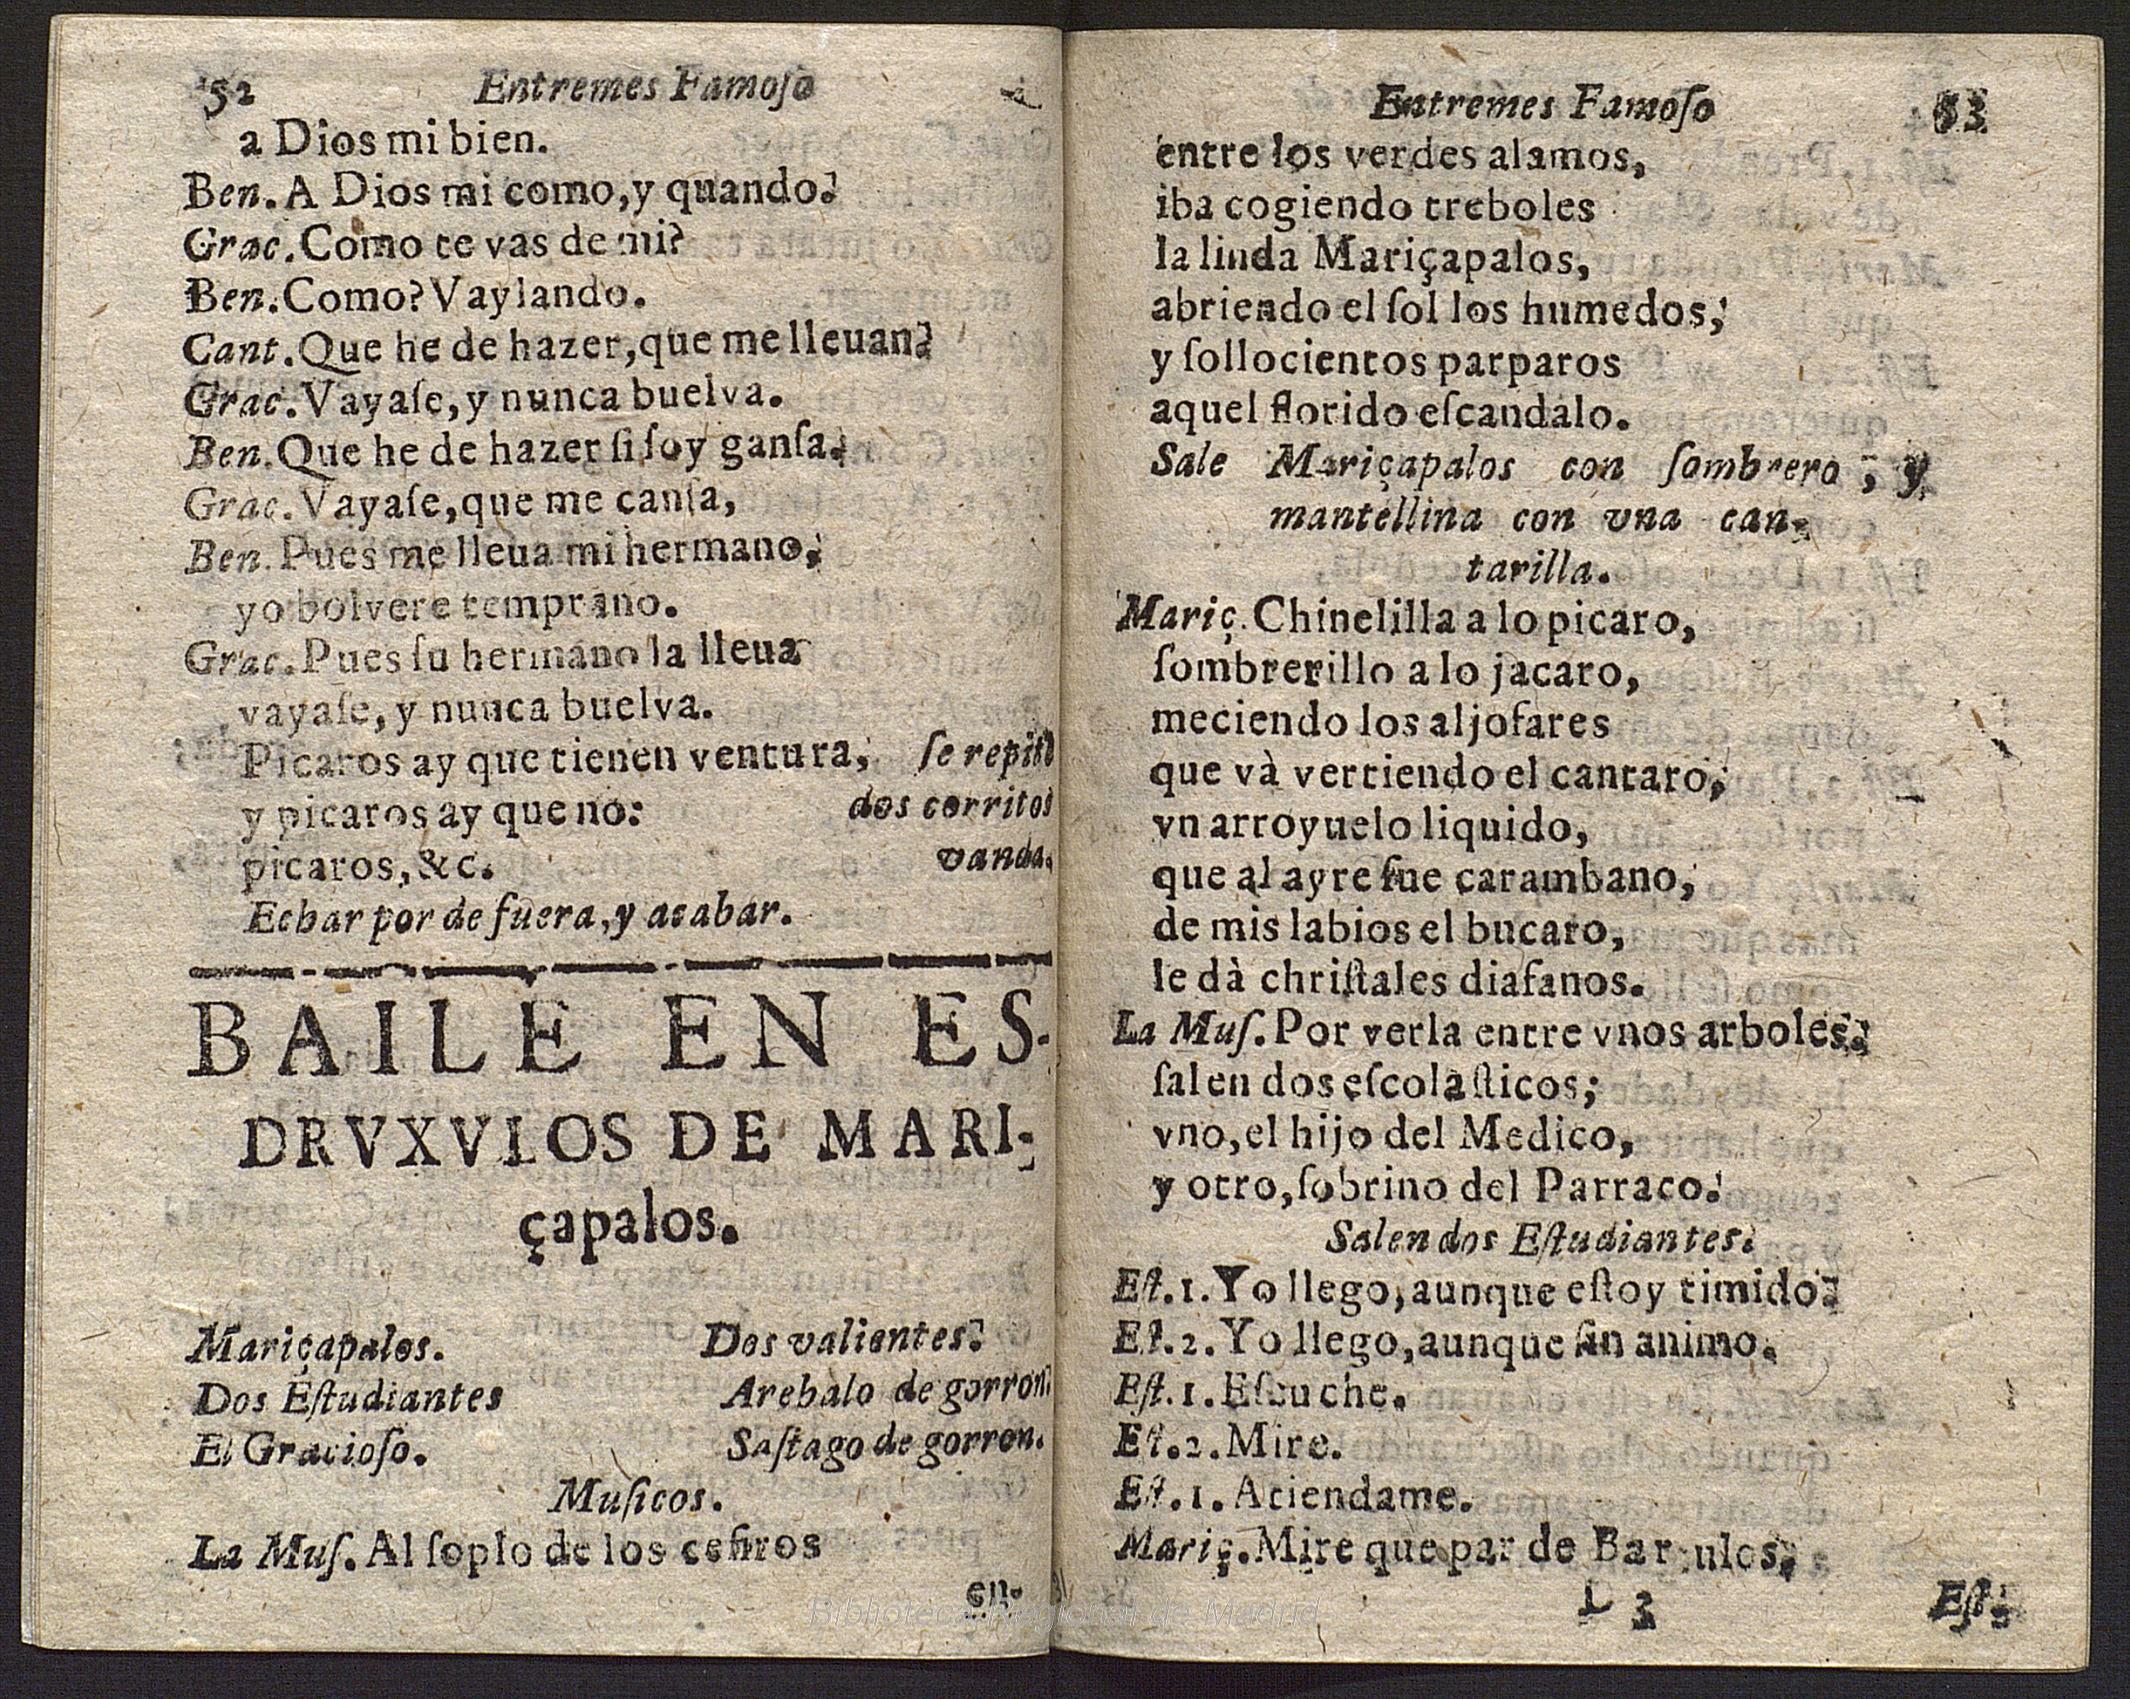 52 Entremes Famoſo
a Dios mi bien.
Ben. A Dios mi como, y quando?
Grac. Como te vas de mi?
Ben. Como? Vaylando.
Cant. Que he de hazer, que me lleuan?
Grac. Vayaſe, y nunca buelva.
Ben. Que he de hazer ſi ſoy ganſa.
Grac. Vayaſe, que me canſa,
Ben. Pues me lleua mi hermano,
yo bolvere temprano.
Grac. Pues ſu hermano la lleua
vayaſe, y nunca buelva.
Picaros ay que tienen ventura, ſe repite
y picaros ay que no: dos corritos
picaros, &c. vanda.
Echar por de fuera, y acabar.
BAILE EN ES-
DRVXVLOS DE MARI-
çapalos.
Mariçapalos. Dos valientes.
Dos Eſtudiantes Arebalo de gorron.
El Gracioſo. Saſtago de gorron.
Muſicos.
La Muſ. Al ſoplo de los cefiros
en-
Entremes Famoſo 53
entre los verdes alamos,
iba cogiendo treboles
la linda Mariçapalos,
abriendo el ſol los humedos,
y ſollocientos parparos
aquel florido eſcandalo.
Sale Mariçapalos con ſombrero, y
mantellina con vna can-
tarilla.
Mariç. Chinelilla a lo picaro,
ſombrerillo a lo jacaro,
meciendo los aljofares
que và vertiendo el cantaro,
vn arroyuelo liquido,
que al ayre fue carambano,
de mis labios el bucaro,
le dà chriſtales diafanos.
La Muſ. Por verla entre vnos arboles,
ſalen dos eſcolaſticos;
vno, el hijo del Medico,
y otro, ſobrino del Parraco.
Salen dos Eſtudiantes.
Eſt. 1. Yo llego, aunque eſtoy timido.
Eſt. 2. Yo llego, aunque ſin animo.
Eſt. 1. Eſcuche.
Eſt. 2. Mire.
Eſt. 1. Atiendame.
Mariç. Mire que par de
3 Eſt.
Biblioteca Regional de Madrid